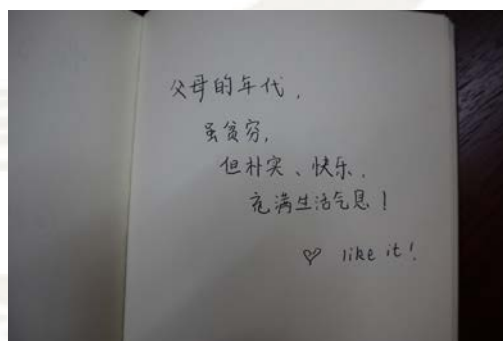 父母的年代，
虽贫穷，
但朴实、快乐，
充满生活气息！
♡ like it!